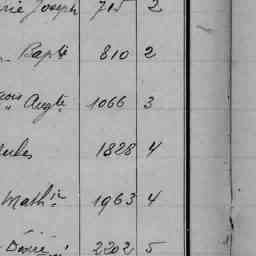 Joseph 715 2
Bapte 810 2
" Augte 1066 3
1828 4
Mathin 1963 4
Désiré 2202 5